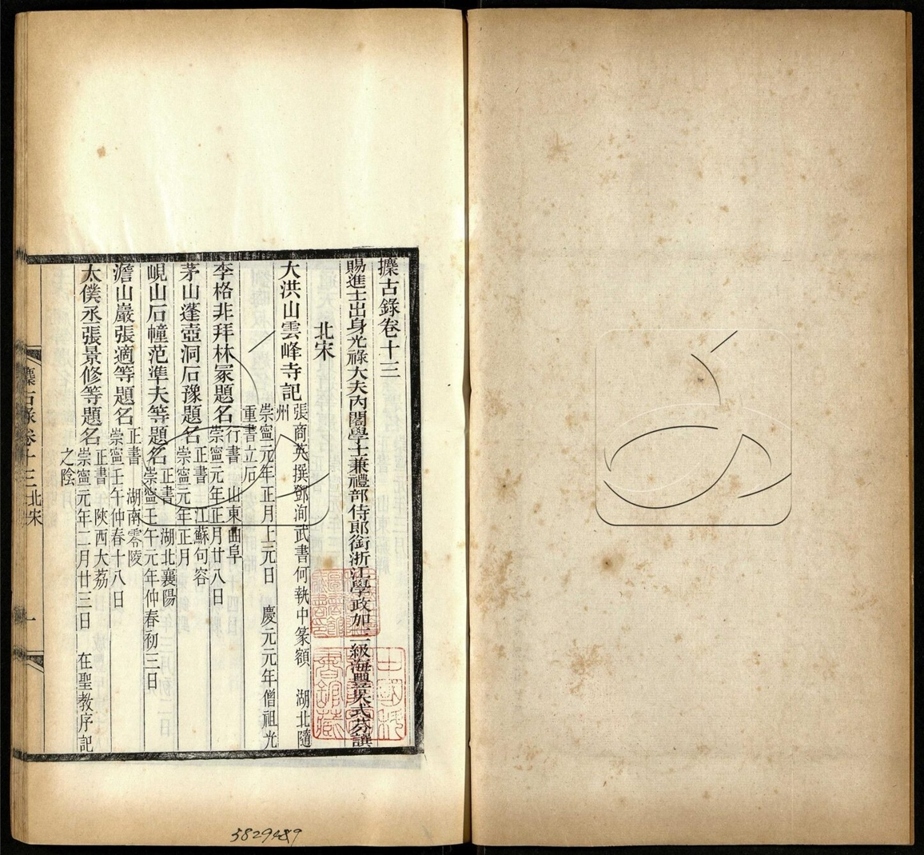 攈古錄卷十三
賜進士出身光祿大夫內閣學士兼禮部侍郎銜浙江學政加二級海豐吳式芬譔
北宋
大洪山雲峰寺記
張商英撰鄧洵武書何執中篆額 湖北隨
州
崇寧元年正月上元日 慶元元年僧祖光
重書立石
李格非拜林冢題名
行書 山東曲阜
崇寧元年正月廿八日
茅山蓬壺洞石豫題名
正書 江蘇句容
崇寧元年正月
峴山石幢范準夫等題名
正書 湖北襄陽
崇寧壬午元年仲春初三日
澹山巖張適等題名
正書 湖南零陵
崇寧壬午仲春十八日
太僕丞張景修等題名
正書 陝西大荔
崇寧元年二月廿三日 在聖教序記
之陰
攈古錄卷十三 北宋 一